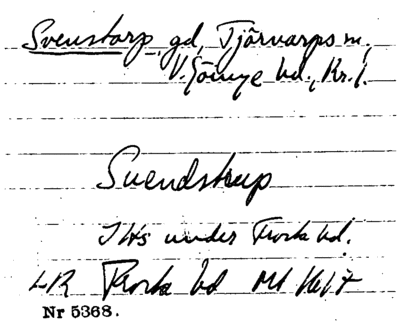 Svenstorp, gd, Tjörnarps sn,
V. Göinge hd., Kr. l.
Svendstrup
JHs under Frosta hd.
LR Frosta hd
Nr 5368.